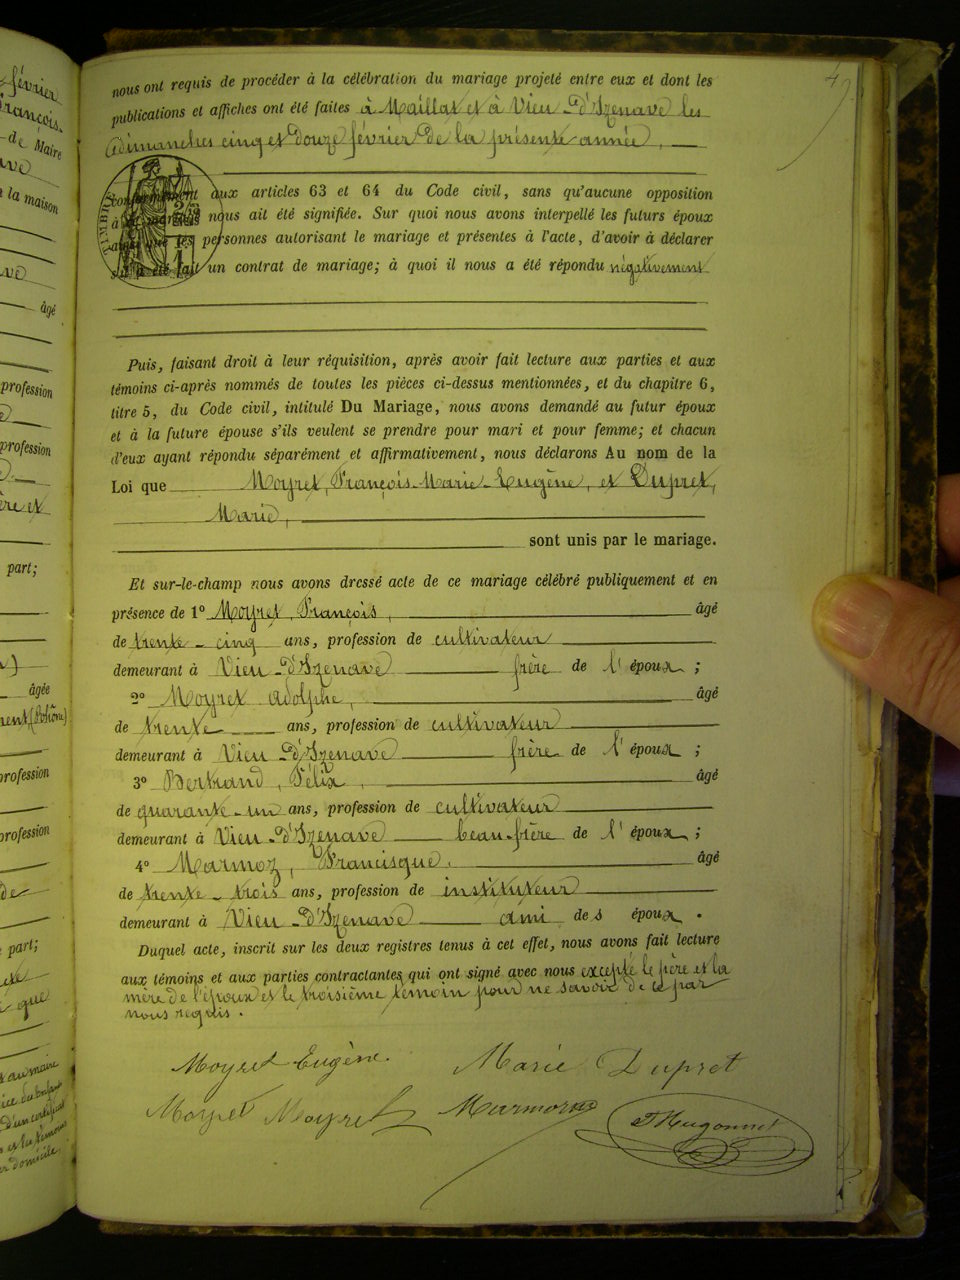 nous ont requis de procéder à la célébration du mariage projeté entre eux et dont les
publications et affiches ont été faites à Maillat et à Vieu-d'Izenave les
dimanches cinq et douze février de la présente année,
aux articles 63 et 64 du Code civil, sans qu'aucune opposition
nous ait été signifiée. Sur quoi nous avons interpellé les futurs époux
personnes autorisant le mariage et présentes à l'acte, d'avoir à déclarer
un contrat de mariage; à quoi il nous a été répondu négativement
Puis, faisant droit à leur réquisition, après avoir fait lecture aux parties et aux
témoins ci-après nommés de toutes les pièces ci-dessus mentionnées, et du chapitre 6,
titre 5, du Code civil, intitulé Du Mariage, nous avons demandé au futur époux
et à la future épouse s'ils veulent se prendre pour mari et pour femme; et chacun
d'eux ayant répondu séparément et affirmativement, nous déclarons Au nom de la
Loi que Moyret, François-Marie-Eugène, et Dupret,
Marie,
sont unis par le mariage.
Et sur-le-champ nous avons dressé acte de ce mariage célébré publiquement et en
présence de 1º Moyret, François, âgé
de trente-cinq ans, profession de cultivateur
demeurant à Vieu-d'Izenave frère de l'époux ;
2º Moyret adolphe, âgé
de trente ans, profession de cultivateur
demeurant à Vieu-d'Izenave frère de l'époux ;
3º Bertrand, Félix, âgé
de quarante-un ans, profession de cultivateur
demeurant à Vieu-d'Izenave beau-frère de l'époux ;
4º Marmoz, Francisque. âgé
de trente-trois ans, profession de instituteur
demeurant à Vieu-d'Izenave ami des époux.
Duquel acte, inscrit sur les deux registres tenus à cet effet, nous avons fait lecture
aux témoins et aux parties contractantes qui ont signé avec nous excepté le père et la
mère de l'époux et le troisième témoin pour ne savoir de ce par
nous requis.
Moyret Eugène. Marie Dupret
Moyret Moyret Marmoz Hugonnet